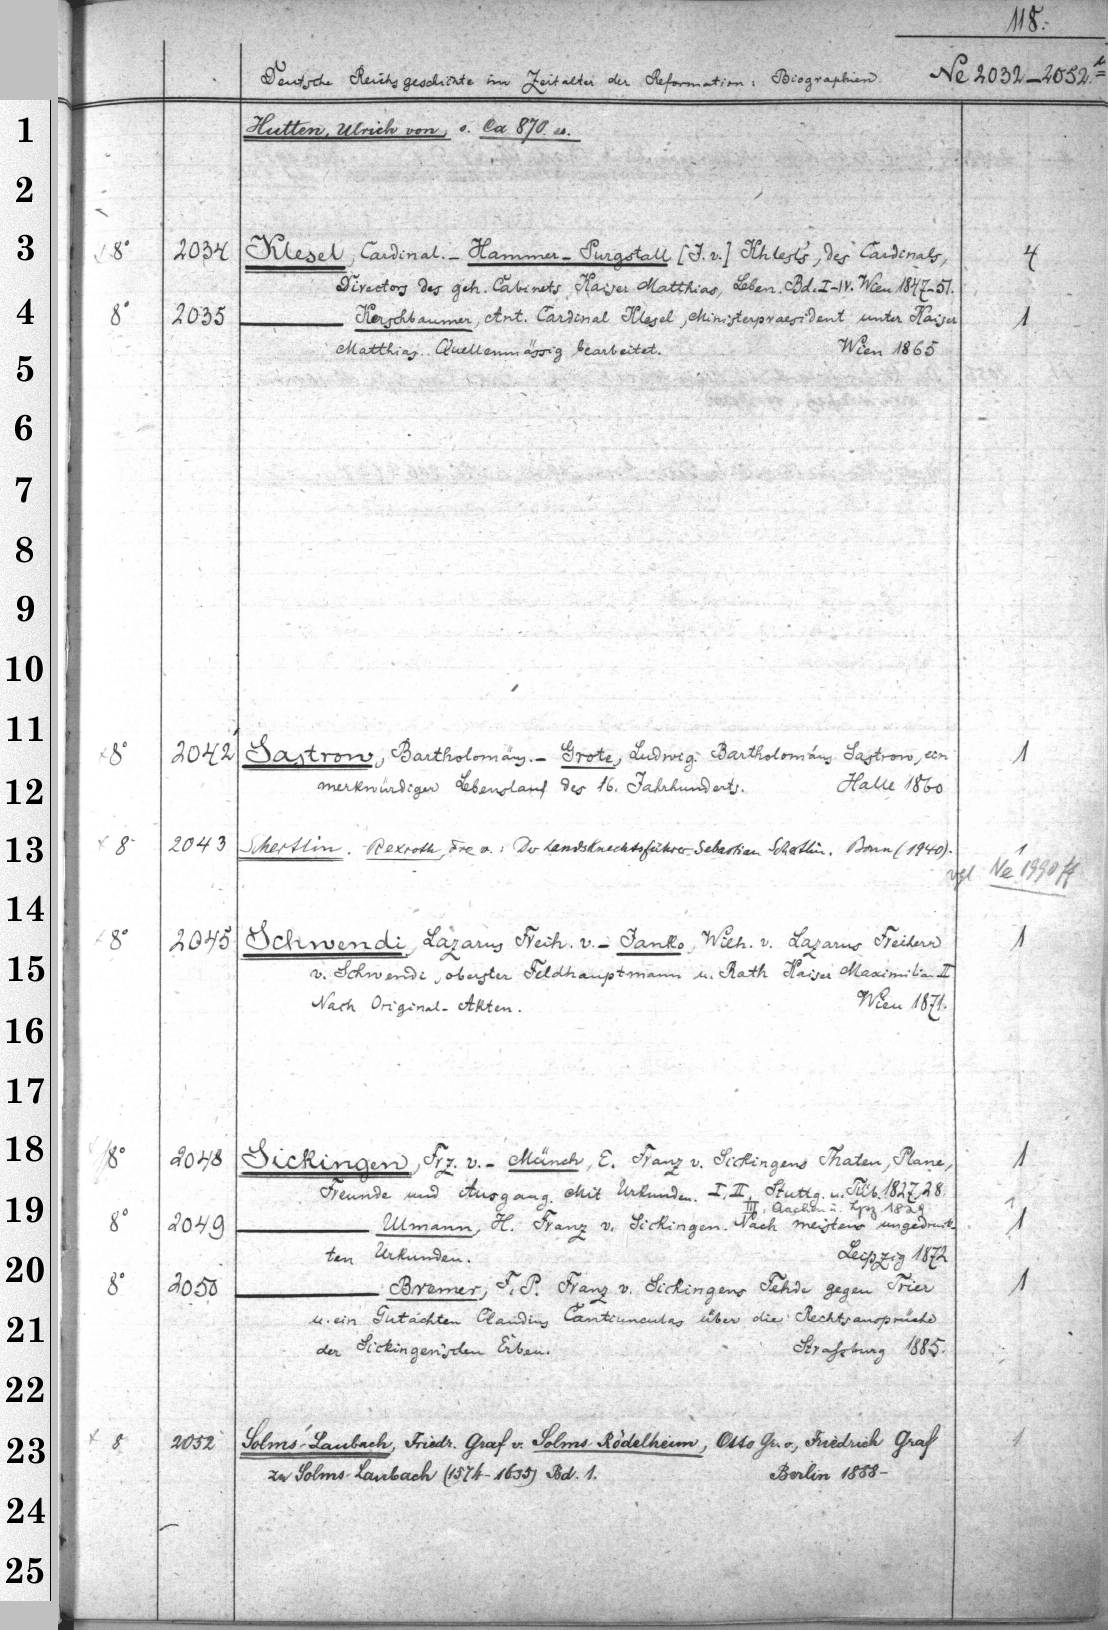 118.
Deutsche Reichsgeschichte im Zeitalter der Reformation: Biographien. Ne 2032–2052.
1 Hutten, Ulrich von, s. Ca 870
2
3 8° 2034 Klesel, Cardinal. – Hammer-Purgstall [J. v.] Khlesl's, des Cardinals, 4
Directors des geh. Cabinets Kaiser Matthias, Leben. Bd. I–IV. Wien 1847–51.
4 8° 2035 ——— Kerschbaumer, Ant. Cardinal Klesel, Ministerpraesident unter Kaiser 1
Matthias. Quellenmässig bearbeitet. Wien 1865
5
6
7
8
9
10
11 × 8° 2042 Sastrow, Bartholomäus. – Grote, Ludwig. Bartholomäus Sastrow, ein 1
12 merkwürdiger Lebenslauf des 16. Jahrhunderts. Halle 1860
13 × 8° 2043 Schertlin. Rexroth, Frz. v.: Der Landsknechtsführer Sebastian Schertlin. Bonn (1940). 1
vgl Ne 1990 ff
14 × 8° 2045 Schwendi, Lazarus Freih. v. – Janko, Wilh. v. Lazarus Freiherr 1
15 v. Schwendi, oberster Feldhauptmann u. Rath Kaiser Maximilian II
Nach Original-Akten. Wien 1871.
16
17
18 8° 2048 Sickingen, Frz. v. – Münch, E. Franz v. Sickingens Thaten, Plane, 1
Freunde und Ausgang. Mit Urkunden. I, II, Stuttg. u. Tüb. 1827,28
III, Aachen u. Lpz 1829 1
19 8° 2049 ——— Ulmann, H. Franz v. Sickingen. Nach meistens ungedruck- 1
ten Urkunden. Leipzig 1872
20 8° 2050 ——— Bremer, F. P. Franz v. Sickingens Fehde gegen Trier 1
21 u. ein Gutachten Claudius Cantiunculas über die Rechtsansprüche
der Sickingen'schen Erben. Straßburg 1885.
22
23 × 8 2052 Solms-Laubach, Friedr. Graf v. Solms-Rödelheim, Otto Gr. v., Friedrich Graf 1
zu Solms-Laubach (1574–1635) Bd. 1. Berlin 1888–
24
25